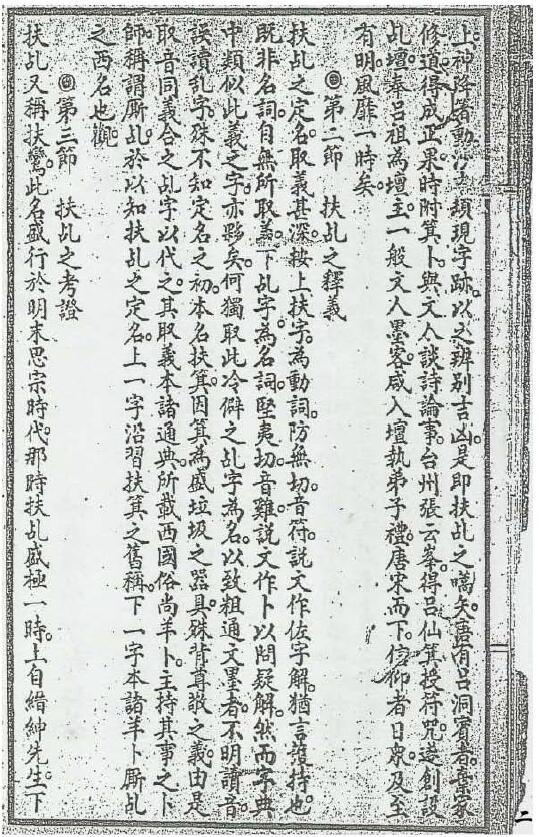 上神降著動沙頃現字跡。以之辨别吉凶。是即扶乩之嚆矢。唐有呂洞賓者。棄家
修道。得成正果。時附箕卜。與文人談詩論事。台州張云峯。得呂仙箕授符咒。遂創設
乩壇。奉呂祖為壇主。一般文人墨客。咸入壇執弟子禮。唐宋而下。信仰者日衆。及至
有明。風靡一時矣。
◎第二節　扶乩之釋義
扶乩之定名。取義甚深。按上扶字。為動詞。防無切。音符。説文作佐字解。猶言護持也。
既非名詞。自無所取義。下乩字。為名詞。堅夷切。音雞。説文作卜以問疑解。然而字典
中類似此義之字。亦夥矣。何獨取此冷僻之乩字為名。以致粗通文墨者。不明讀音。
誤讀乩字。殊不知定名之初。本名扶箕。因箕為盛垃圾之器具。殊背尊敬之義。由是
取音同義合之乩字以代之。其取義本諸通典所載西國俗尚羊卜。主持其事之卜
師。稱謂厮乩。於以知扶乩之定名。上一字沿習扶箕之舊稱。下一字本諸羊卜厮乩
之西名也觀。
◎第三節　扶乩之考證
扶乩又稱扶鸞。此名盛行於明末思宗時代。那時扶乩盛極一時。上自縉紳先生。下
二